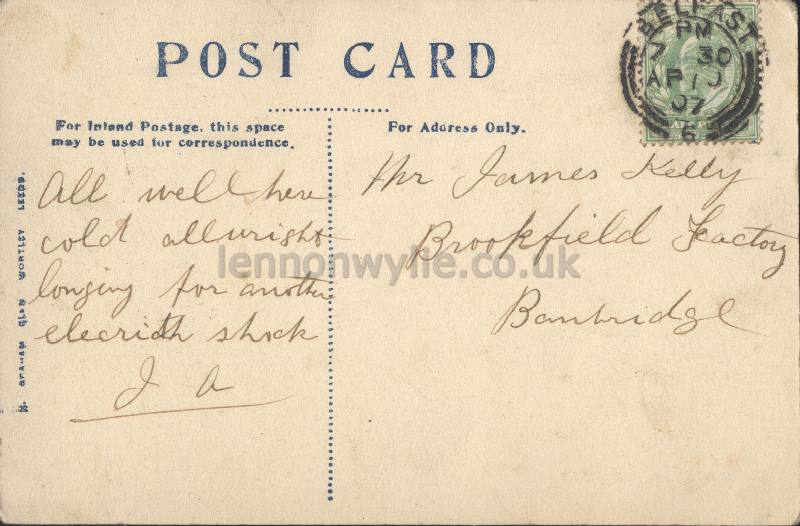 POST CARD
For Inland Postage, this space
may be used for correspondence.
For Address Only.
BELFAST
PM
7 30
AP 10
07
6
All well here
cold allwright
longing for another
elecrich shock
J A
Mr James Kelly
Brookfield Factory
Banbridge
lennonwylie.co.uk
GRAHAM GLEN WORTLEY LEEDS.